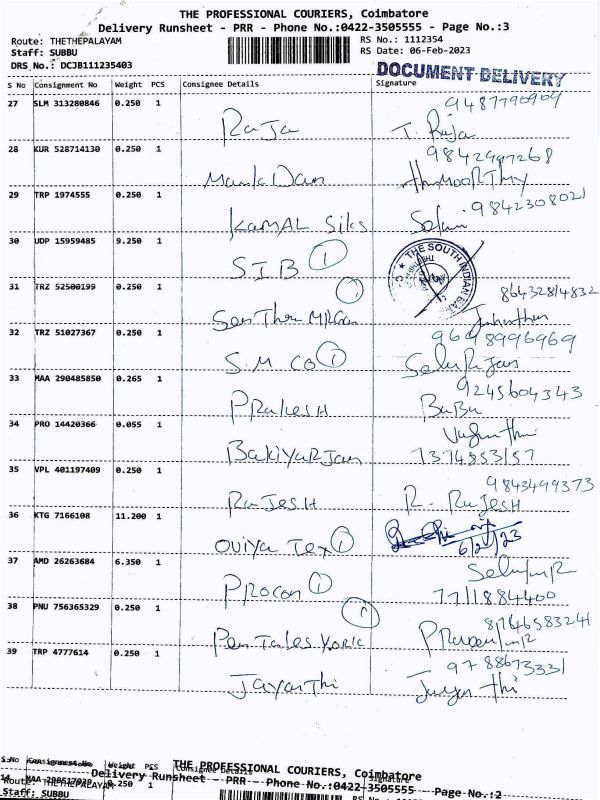 THE PROFESSIONAL COURIERS, Coimbatore
Delivery Runsheet - PRR - Phone No.:0422-3505555 - Page No.:3
Route: THETHEPALAYAM RS No.: 1112354
Staff: SUBBU RS Date: 06-Feb-2023
DRS No.: DCJB111235403
DOCUMENT DELIVERY
S No Consignment No Weight PCS Consignee Details Signature
27 SLM 313280846 0.250 1 9487790909
Raja T. Raja
28 KUR 528714130 0.250 1 9842997268
29 TRP 1974555 0.250 1 9842308021
KAMAL Silks
30 UDP 15959485 9.250 1
SIB 1 THE SOUTH INDIAN BANK
31 TRZ 52500199 0.250 1 86432814832
32 TRZ 51027367 0.250 1 9698996969
S.M CO 1
33 MAA 290485850 0.265 1 9245604343
PRakesH BaBu
34 PRO 14420366 0.055 1
BakiyaRJam 7374853157
35 VPL 401197409 0.250 1 9843499373
RaJesH R. RaJesH
36 KTG 7166108 11.200 1
Oviya Tex 1 6/2/23
37 AMD 26263684 6.350 1
Procon 1 7711884400
38 PNU 756365329 0.250 1 8746583241
39 TRP 4777614 0.250 1 9788673331
JayanThi Jayanthi
S.No Consignment No Weight PCS Consignee Details Signature
THE PROFESSIONAL COURIERS, Coimbatore
Delivery Runsheet - PRR - Phone No.:0422-3505555 - Page No.:2
14 MAA 0.250 1
Route: THETHEPALAYAM
Staff: SUBBU